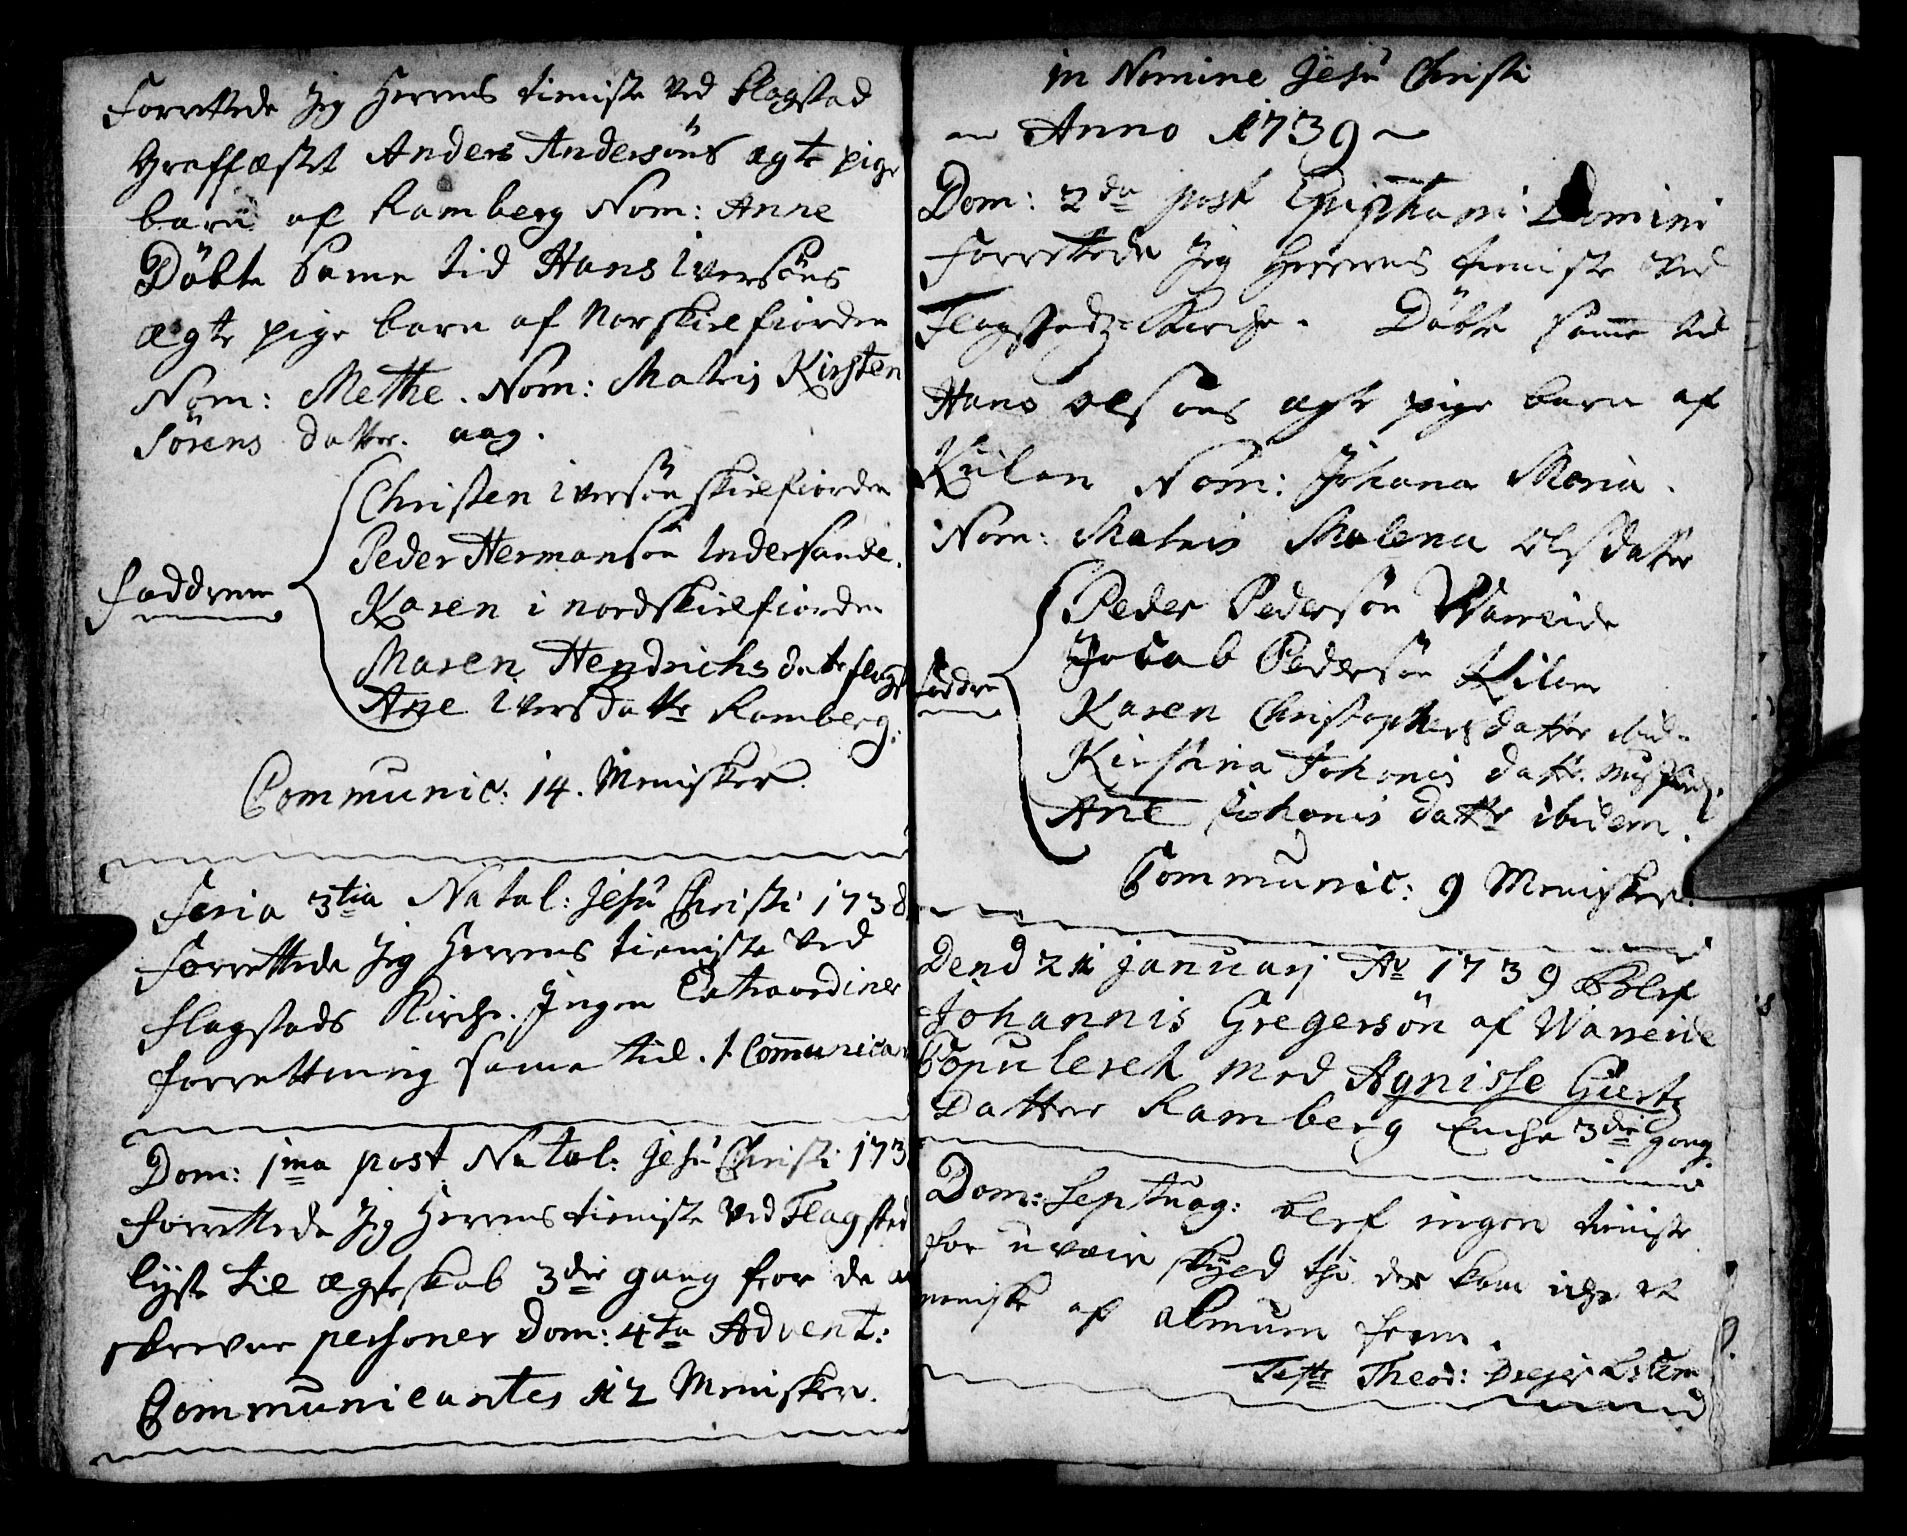 Forrettede Jeg Herrens tieniste ved Flagstad
Graffæstet Anders Andersöns ægte pige
barn af Ramberg Nom: Anne
Döbte Same tid Hans Iversöns
ægte pige barn af Norskielfiorden
Nom: Methe. Nom: Matris Kirsten
Sörens datter. aag.
Christen iversön skielfiorden
Peder Hermansön Indersande.
Faddrene
Karen i nordskielfiorden
Maren Hendrichs datr flags
Ane Iversdattr Ramberg.
Communic: 14. Menisker.
Feria 3tia Natal: Jesu Christi 1738
Forrettede Jeg Herrens tieniste ved
flagstads Kirche. Ingen Extraordiner
forrettning same tid. 1 Com̄unica
Dom: 1ma post Natal: Jesu Christi 173
forrettede Jeg Herrens tieniste ved Flagsted
lyste til ægteskab 3die gang for de
skrevne personer Dom: 4ta Advent:
Communicantes 12 Menisker.
in Nomine Jesu Christi
Anno 1739
Dom: 2da post Epiphani: Domini
forrettede Jeg Herrens tieniste ved
Flagstads Kirche. Döbte samme tid
Hans olsöns ægte pige barn af
Kuilen Nom: Johana Maria.
Nom: Matris Malena olsdatter
Peder Pedersön Warreide
Jocab Pedersön Kilen
faddre
Karen Christophersdatter ibid
Kirstina Johanis dattr.
Ane Johanis dattr ibidem.
Communic: 9 Menisker.
Dend 21 januarj Ao 1739 Blef
Johannis Gregersön af Warreide
Copuleret med Agnisse Giertz
Datter Ramberg Enche 3die gang.
Dom: Septuag: blef ingen tieniste
for uveirs skyld thi der kom iche et
meniske af almuen frem.
Teste Theod: Dreyer